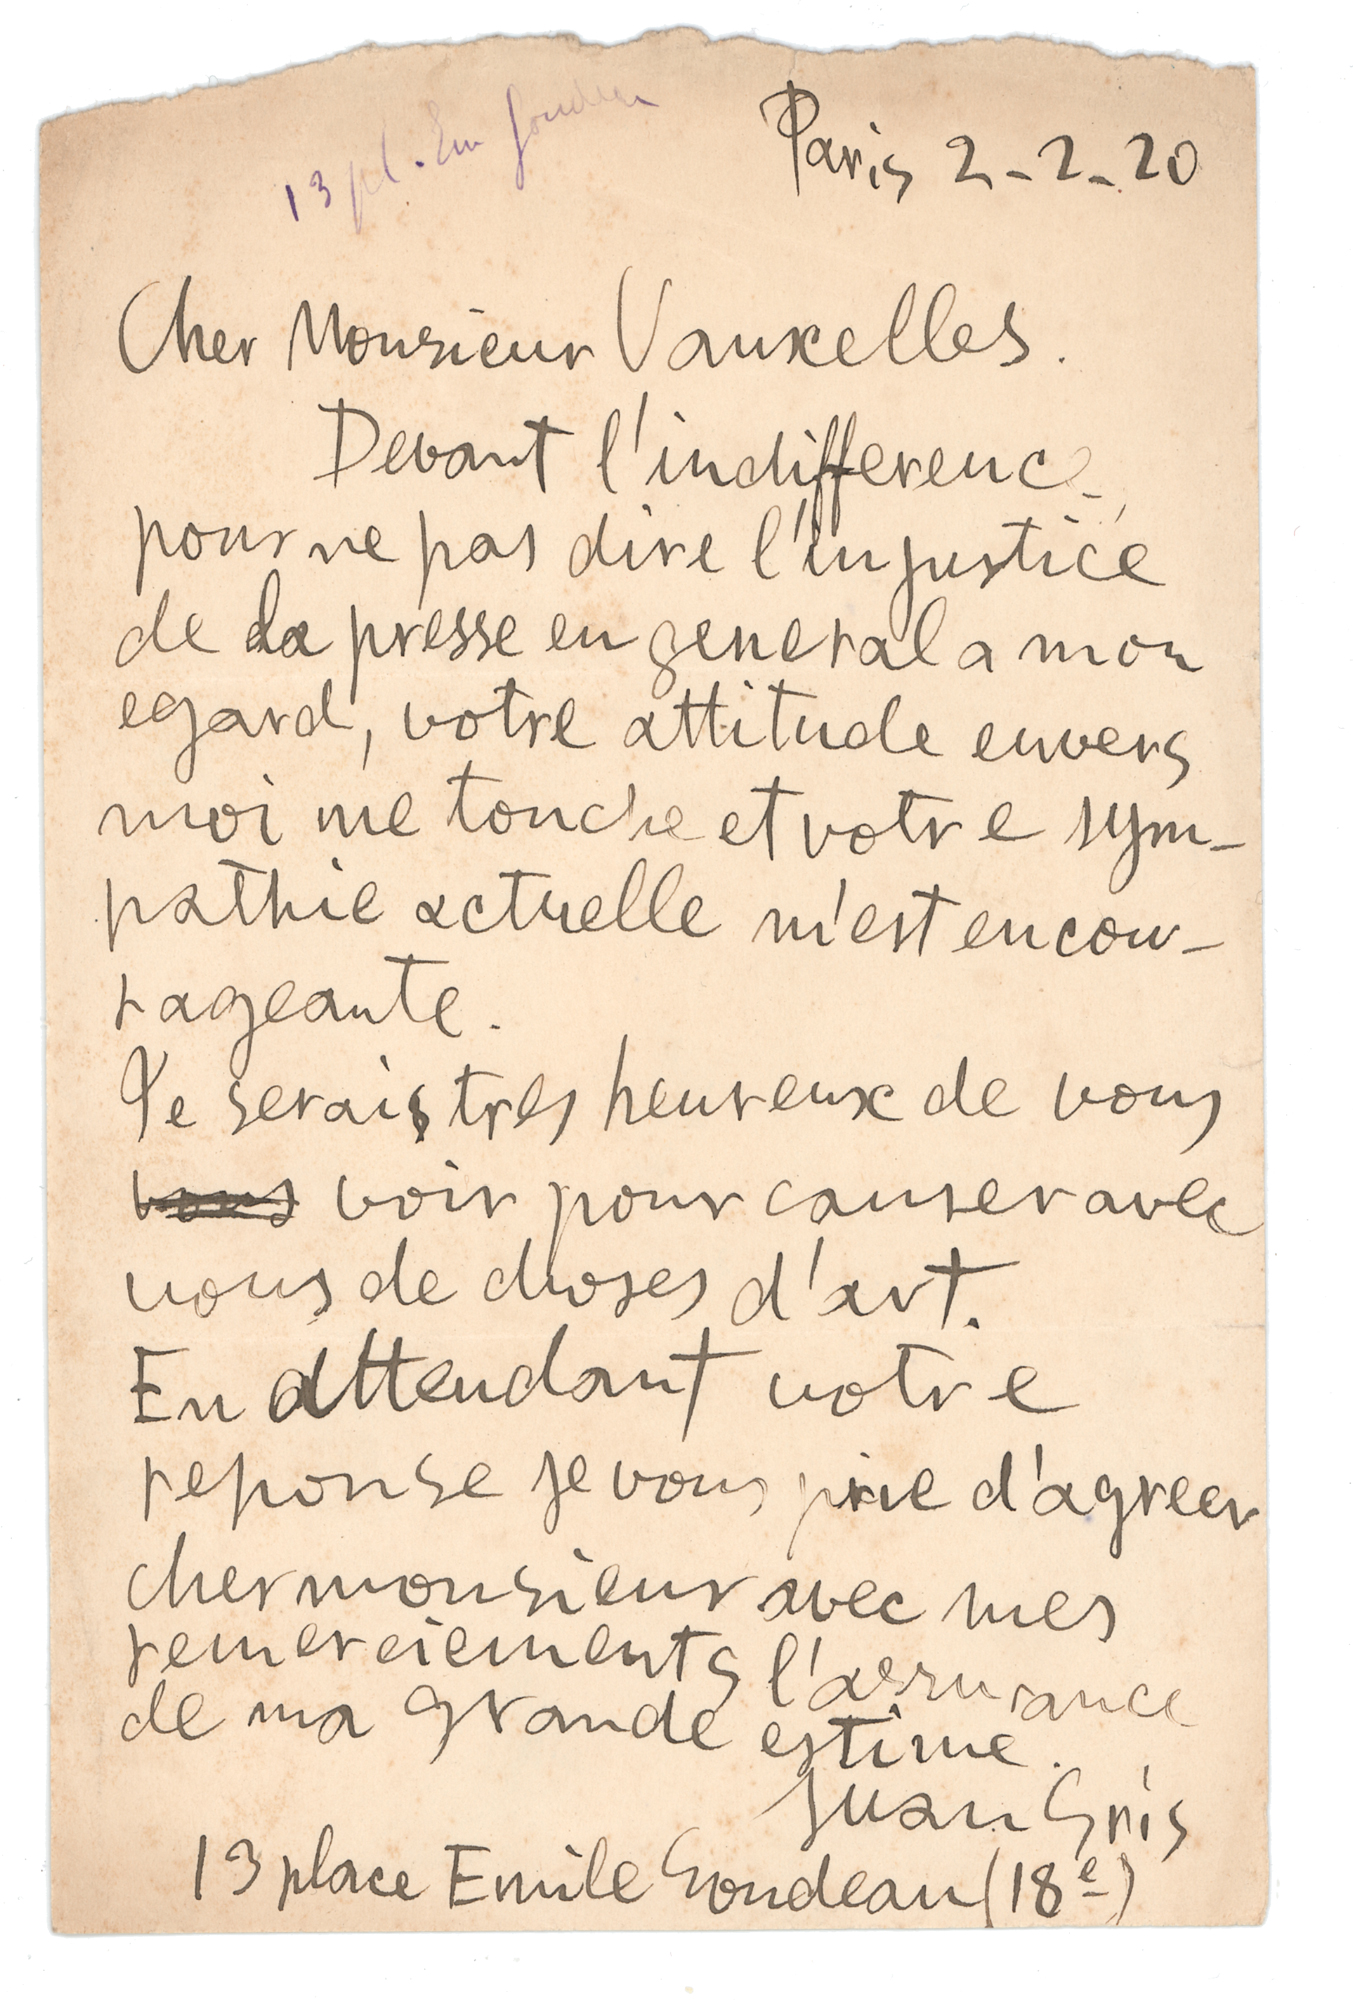 13 pl. Em Goudeau
Paris 2-2-20
Cher Monsieur Vauxcelles.
Devant l'indifference,
pour ne pas dire l'injustice
de la presse en general a mon
egard, votre attitude envers
moi me touche et votre sym-
pathie actuelle m'est encou-
rageante.
Je serais tres heureux de vous
vous voir pour causer avec
vous de choses d'art.
En attendant votre
reponse je vous prie d'agreer
cher monsieur avec mes
remerciements l'assurance
de ma grande estime.
Juan Gris
13 place Emile Goudeau (18e)